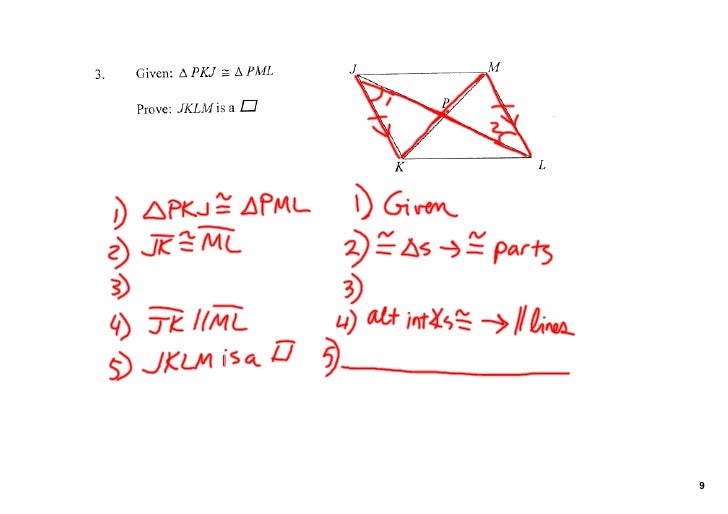 3. Given: △ PKJ ≅ △ PML
Prove: JKLM is a ▱
J M
1
P
2
K L
1) △PKJ ≅ △PML 1) Given
2) JK ≅ ML 2) ≅ △s → ≅ parts
3) 3)
4) JK // ML 4) alt int ∡s ≅ → // lines
5) JKLM is a ▱ 5)
9